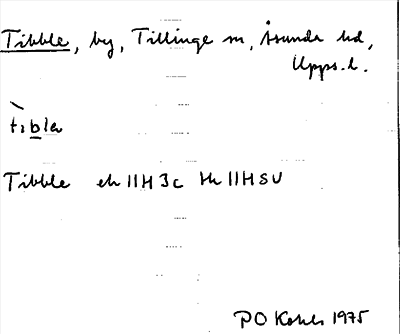 Tibble, by, Tillinge sn, Åsunda hd,
Upps. l.
tìbler
Tibble ek 11H 3c Hk 11H SV
PO 1975